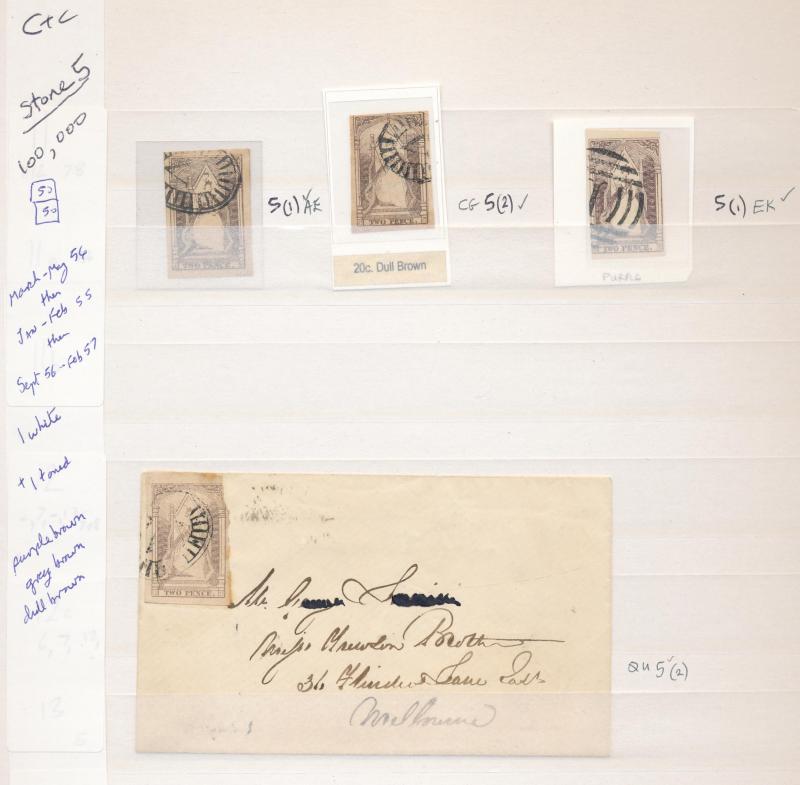 C+C
Stone 5
100,000
50
50
March-May 54
then
JAN-Feb 55
then
Sept 56-Feb 57
1 white
+ 1 toned
purple brown
grey brown
dull brown
TWO PENCE.
5(1) AE
TWO PENCE.
CG 5(2) ✓
20c. Dull Brown
TWO PENCE.
5(1) EK ✓
PURPLE
TWO PENCE.
Mr.
36 Flinders Lane East
Melbourne
QU 5(2)